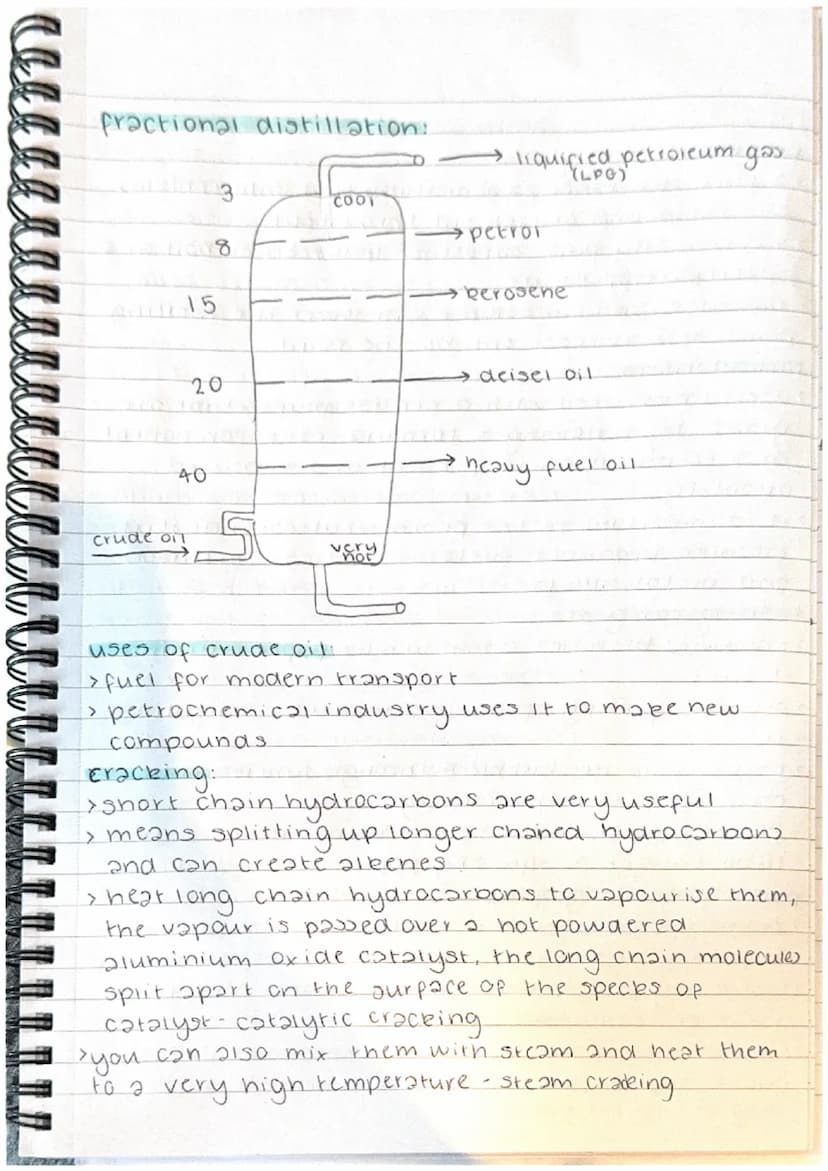 fractional distillation:
liquified petroleum gas
(LPG)
3
cool
petrol
8
kerosene
15
deisel oil
20
heavy fuel oil
40
crude oil
very
hot
uses of crude oil:
> fuel for modern transport
> petrochemical industry uses it to make new
compounds
cracking:
> short chain hydrocarbons are very useful
> means splitting up longer chained hydrocarbons
and can create alkenes
> heat long chain hydrocarbons to vapourise them,
the vapour is passed over a hot powdered
aluminium oxide catalyst, the long chain molecules
split apart on the surface of the specks of
catalyst - catalytic cracking
> you can also mix them with steam and heat them
to a very high temperature - steam cracking